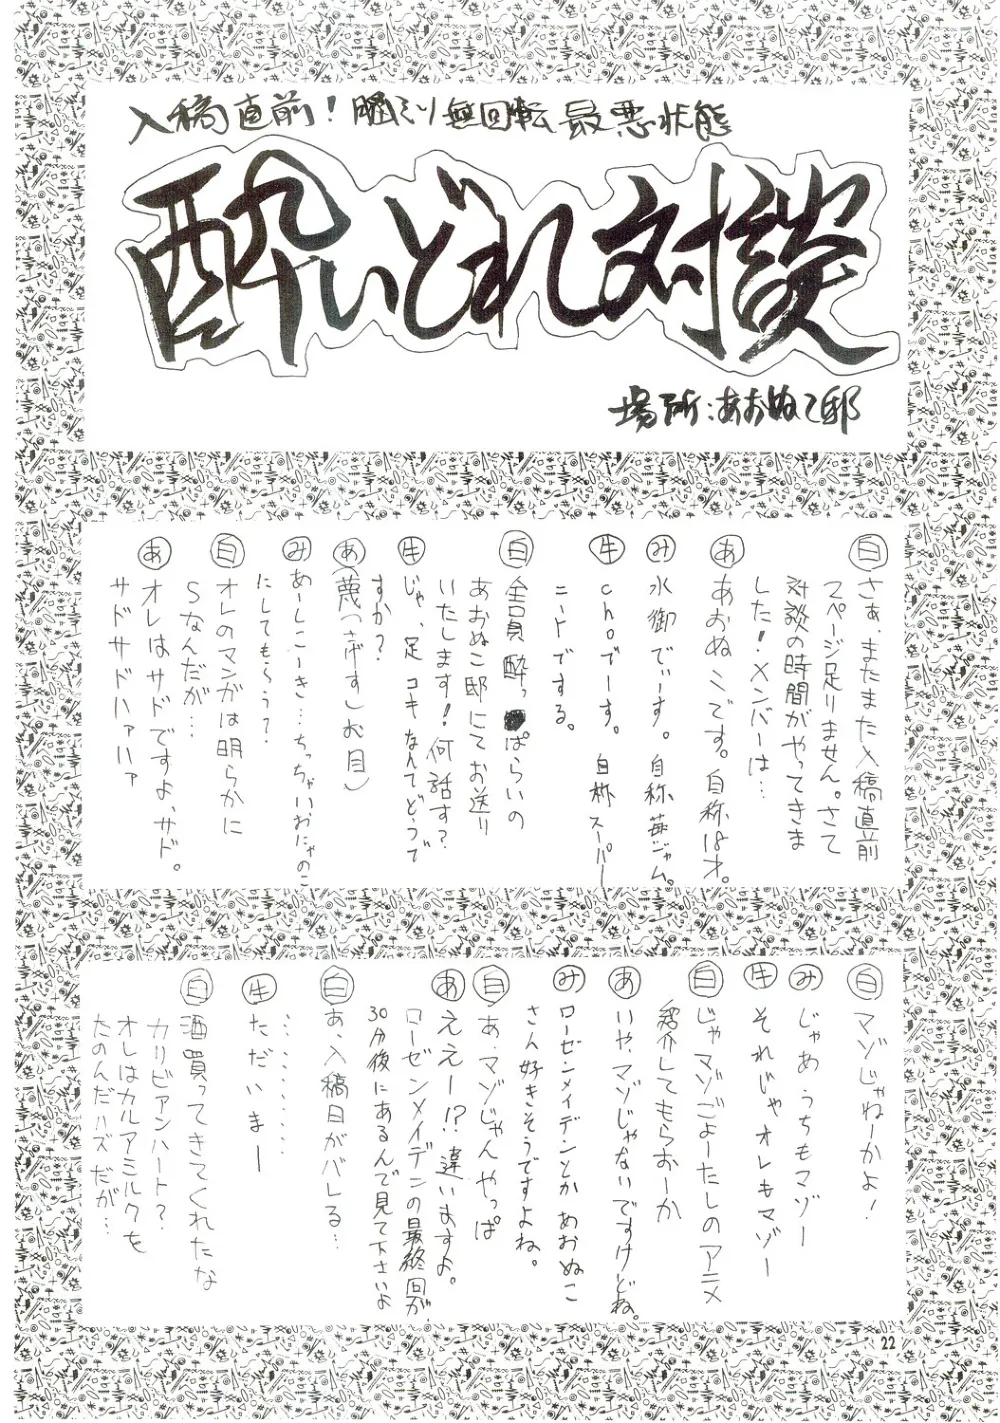 入稿直前!脳ミソ無回転最悪状態
酔いどれ対談
場所:あおぬこ邸
白 さぁ、またまた入稿直前
2ページ足りません。さて
対談の時間がやってきま
した!メンバーは…
あ あおぬこです。自称18才。
み 水御でぃーす。自称苺ジャム。
牛 choでーす。自称スーパー
ニートでする。
白 全員酔っぱらいの
あおぬこ邸にてお送り
いたします!何話す?
牛 じゃ、足コキなんてどうで
すか?
あ (蔑っさげすむお目)
み あーしこーき…ちっちゃいおにゃのこ
にしてもらう?
白 オレのマンガは明らかに
Sなんだが…
あ オレはサドですよ、サド。
サドサドハァハァ
白 マゾじゃねーかよ!
み じゃあうちもマゾー
牛 それじゃオレもマゾー
白 じゃマゾごよーたしのアニメ
紹介してもらおーか
あ いや、マゾじゃないですけどね。
み ローゼンメイデンとかあおぬこ
さん好きそうですよね。
白 あ、マゾじゃんやっぱ
あ ええー!?違いますよ。
ローゼンメイデンの最終回が
30分後にあるんで見て下さいよ
白 あ、入稿日がバレる…
…………
牛 ただいまー
白 酒買ってきてくれたな
カリビアンハート?
オレはカルアミルクを
たのんだハズだが…
22